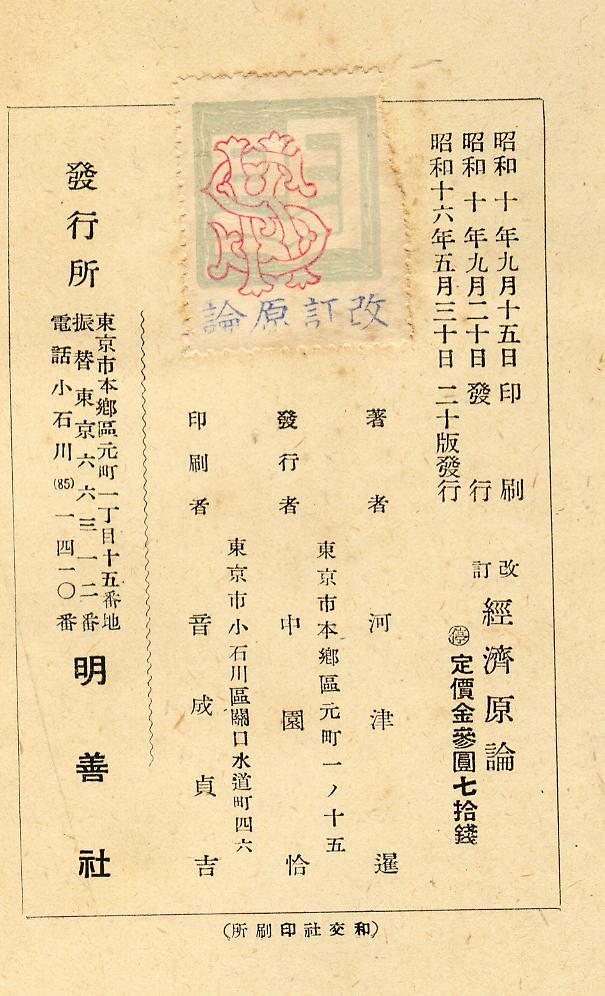 改訂原論
昭和十年九月十五日印刷
昭和十年九月二十日發行
昭和十六年五月三十日二十版發行
改訂 經濟原論
㊡定價金參圓七拾錢
著者 河津暹
東京市本鄉區元町一ノ十五
發行者 中園恰
東京市小石川區關口水道町四六
印刷者 音成貞吉
東京市本鄉區元町一丁目十五番地
發行所 明善社
振替東京六六三一二番
電話小石川(85)一四一〇番
(和交社印刷所)